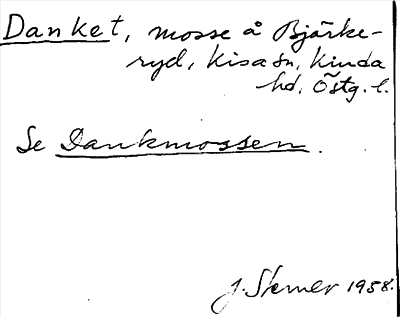 Danket, mosse å Bjärke-
ryd, Kisa sn, Kinda
hd, Östg. l.
Se Dankmossen.
J. Sterner 1958.